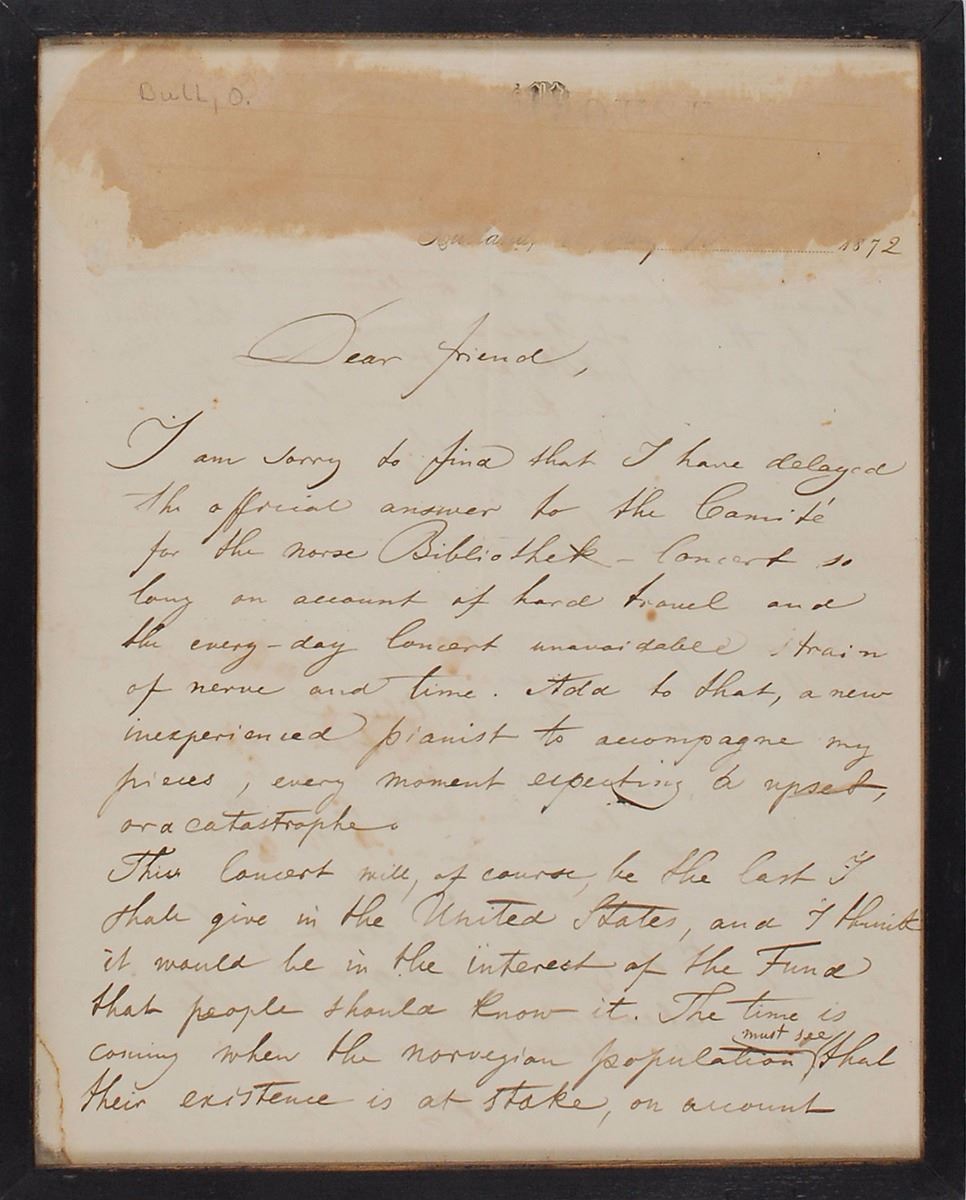 Bull, O.
1872
Dear friend,
I am sorry to find that I have delayed
the official answer to the Comité
for the norse Bibliothek - Concert so
long on account of hard travel and
the every-day Concert unavoidable strain
of nerve and time. Add to that, a new
inexperienced pianist to accompagne my
pieces, every moment expecting a upset,
or a catastrophe.
This Concert will, of course, be the last I
shall give in the United States, and I think
it would be in the interest of the Fund
that people should know it. The time is
must see
coming when the norvegian population that
their existence is at stake, on account